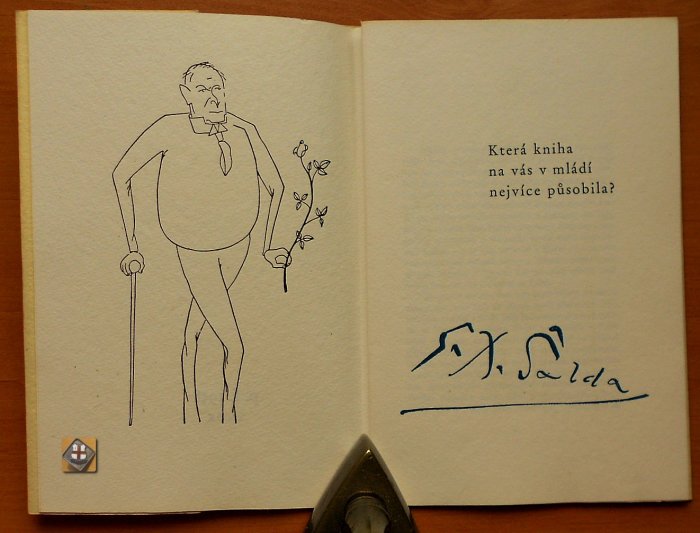 Která kniha
na vás v mládí
nejvíce působila?
F. X. Šalda